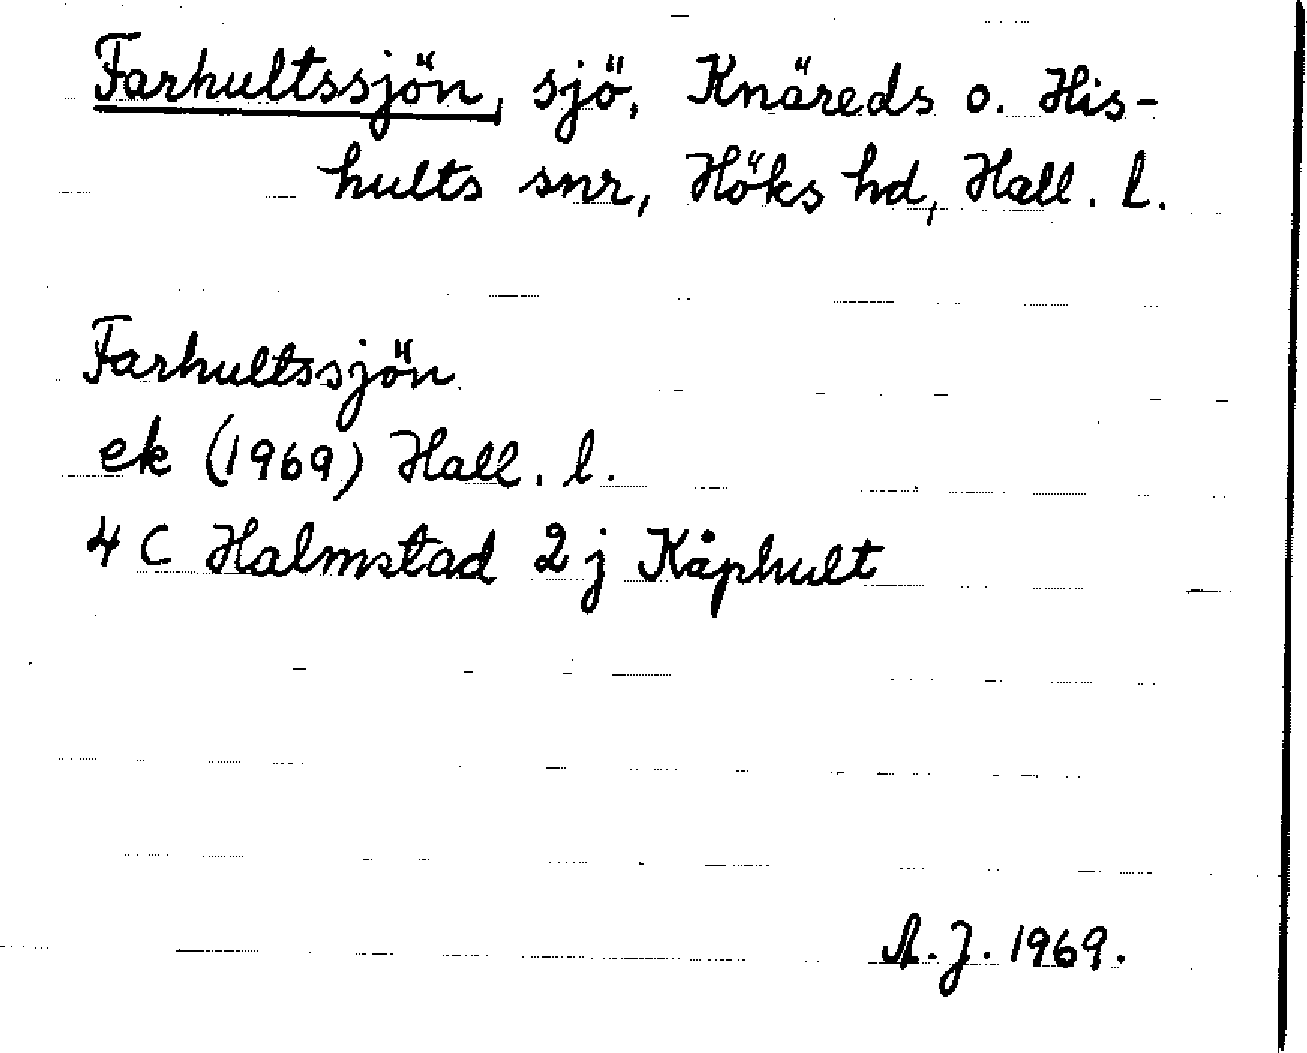 Farhultssjön, sjö, Knäreds o. His-
hults snr, Höks hd, Hall. l.
Farhultssjön
ek (1969) Hall. l.
4 C Halmstad 2 j Kåphult
A. J. 1969.